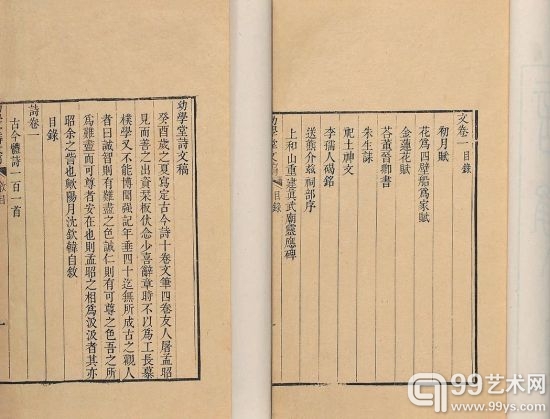 文卷一目錄
初月賦
花爲四壁船爲家賦
金蓮花賦
荅董晉卿書
朱生誄
祀土神文
李孺人碣銘
送熊介兹祠部序
上和山重建眞武廟靈應碑
幼學堂文 目錄
幼學堂詩文稿
癸酉歲之夏寫定古今詩十卷文筆四卷友人屠孟昭
見而善之出貲栞板伏念少喜辭章時不以爲工長慕
樸學又不能博聞強記年垂四十迄無所成古之觀人
者曰誠智則有難盡之色誠仁則有可尊之色吾之所
爲難盡而可尊者安在也則孟昭之相爲汲汲者其亦
昭余之咎也歟陽月沈欽韓自敘
目錄
詩卷一
古今體詩一百一首
99艺术网
www.99ys.com